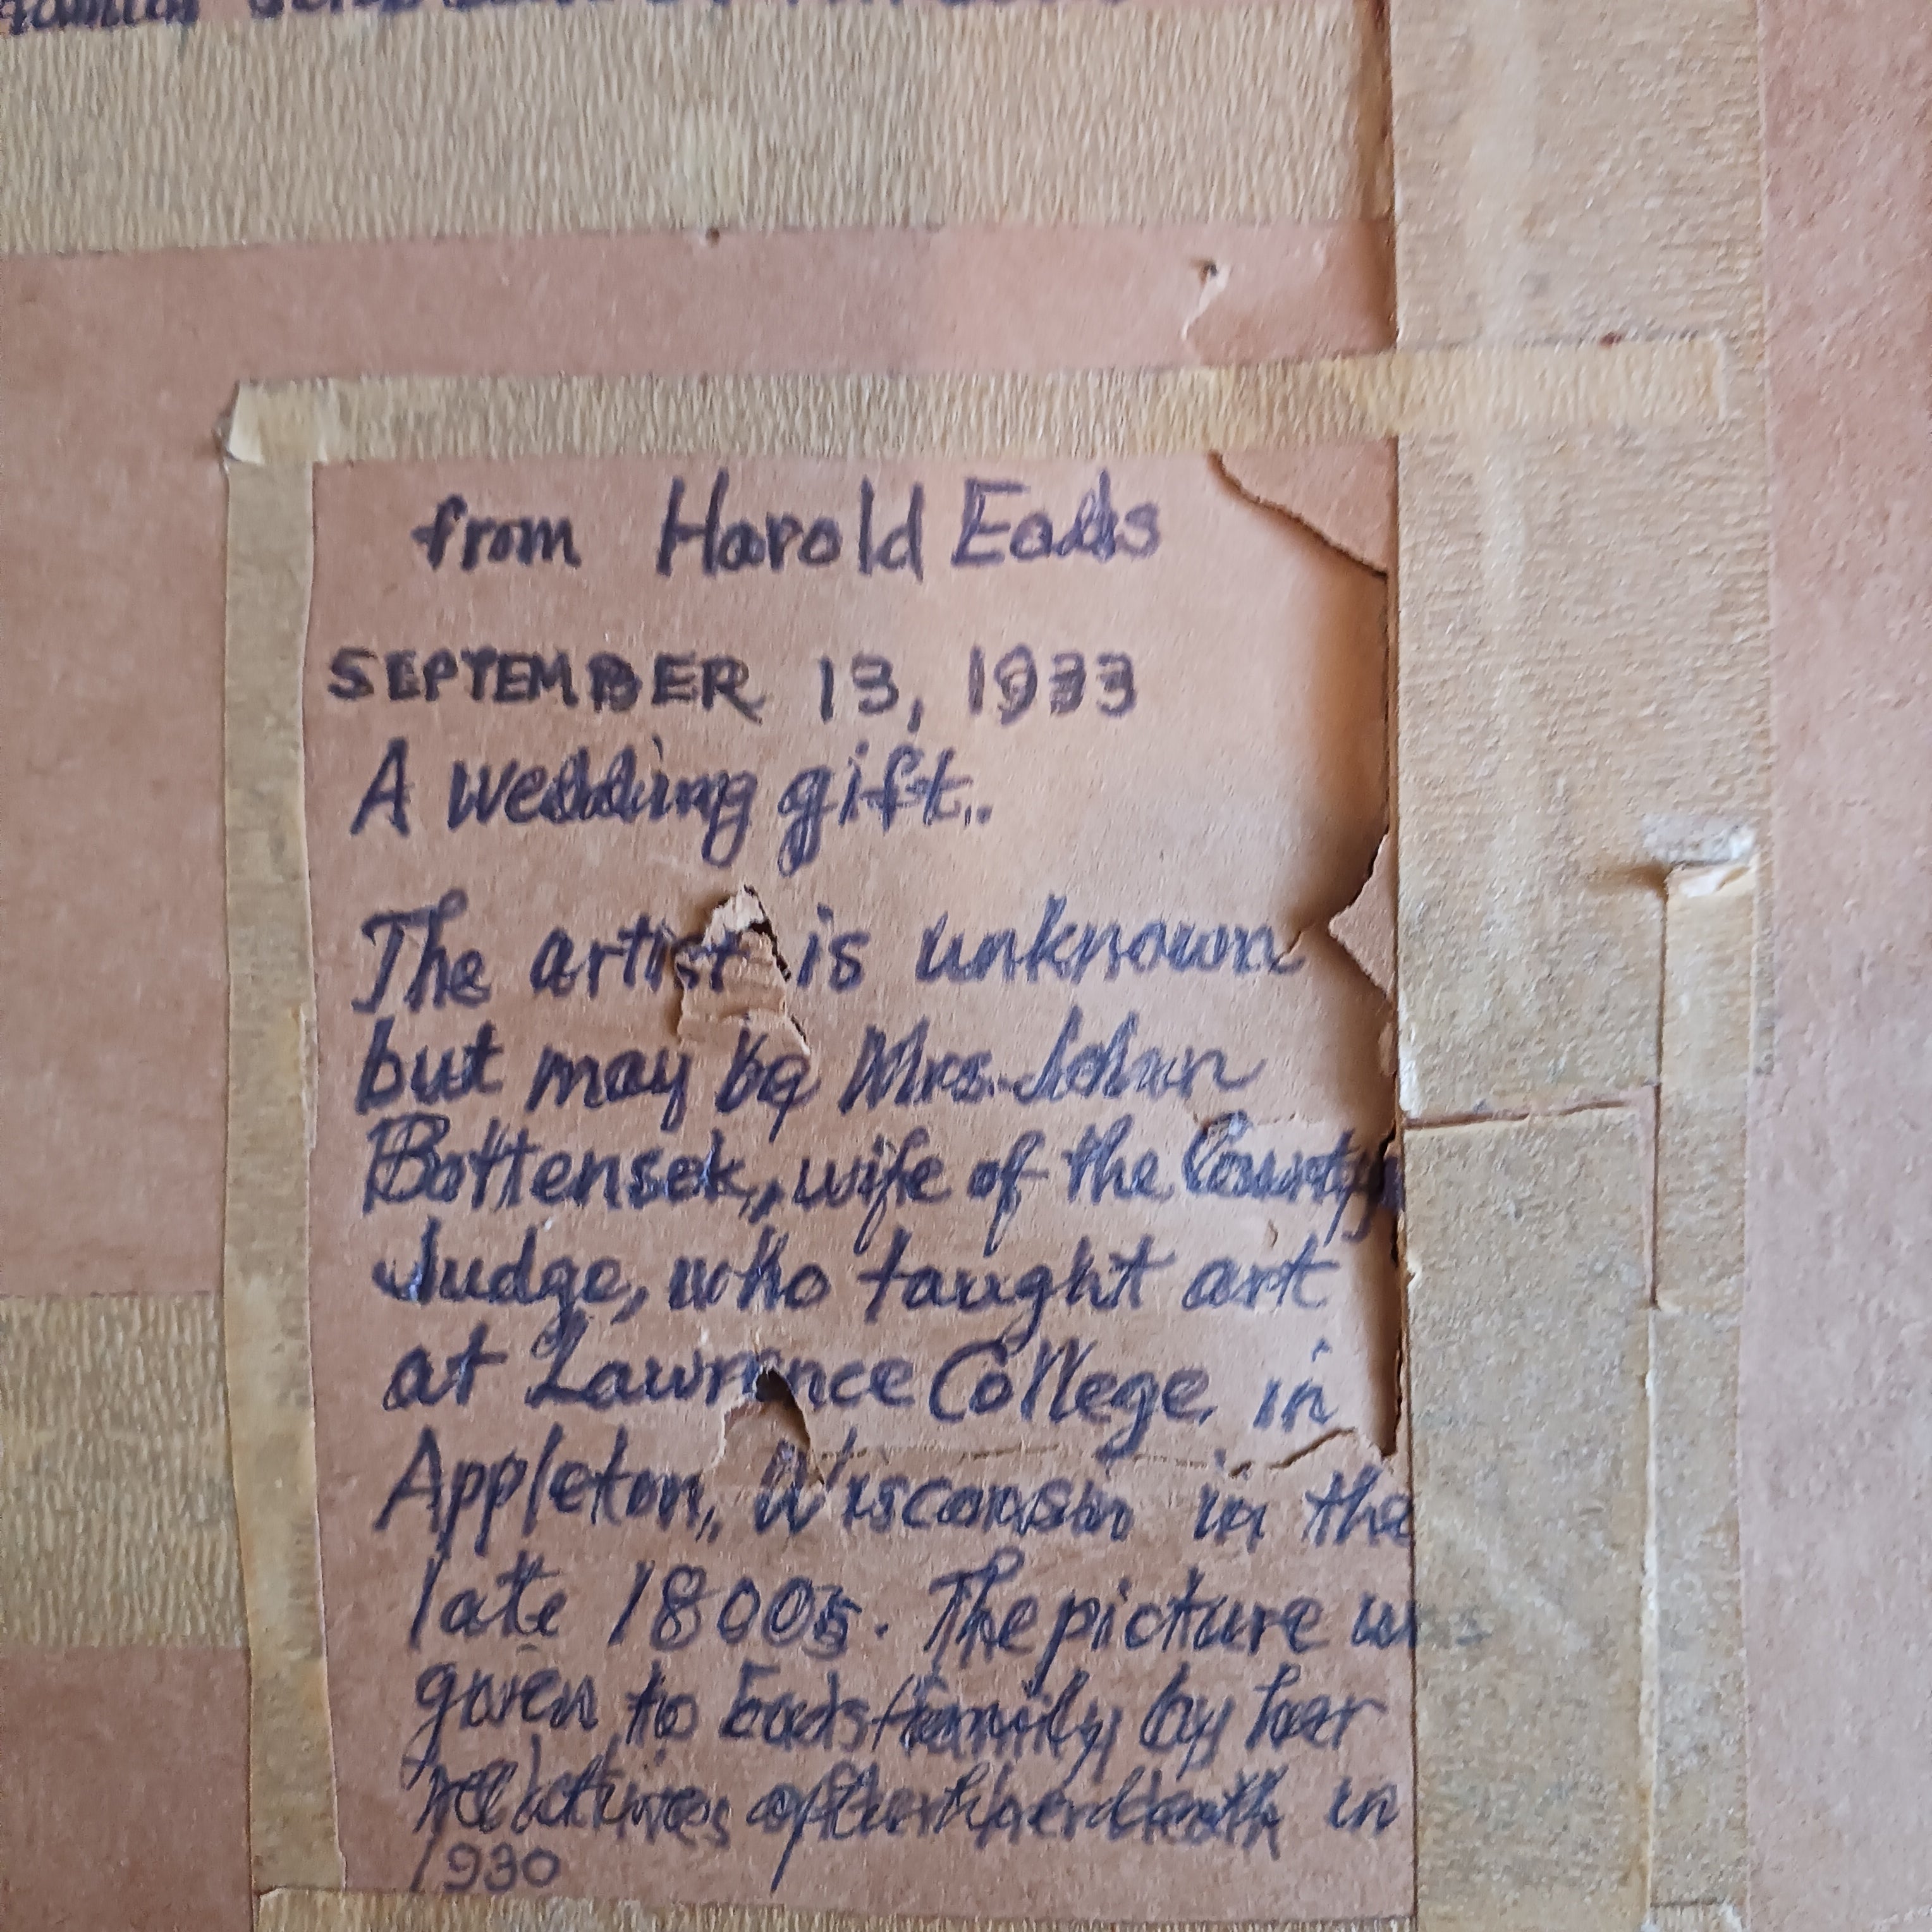 from Harold Eads
SEPTEMBER 13, 1933
A wedding gift.
The artist is unknown
but may be Mrs. John
Bottensek, wife of the County
Judge, who taught art
at Lawrence College, in
Appleton, Wisconsin in the
late 1800s. The picture was
given to Eads family by her
relatives after her death in
1930